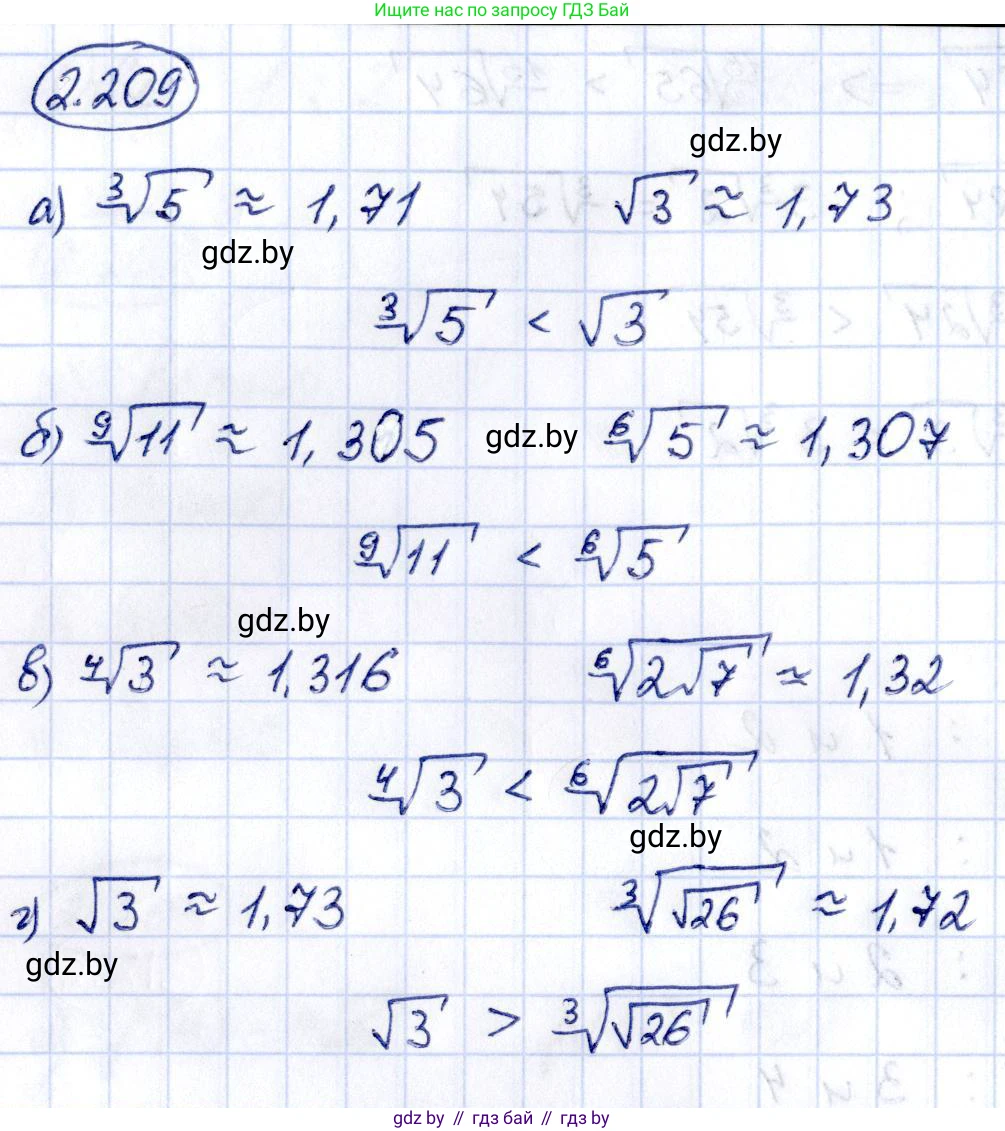 Ищите нас по запросу ГДЗ Бай
2.209
gdz.by
а) ∛5 ≈ 1,71 √3 ≈ 1,73
gdz.by
∛5 < √3
б) ⁹√11 ≈ 1,305 gdz.by ⁶√5 ≈ 1,307
⁹√11 < ⁶√5
gdz.by
в) ⁴√3 ≈ 1,316 ⁶√(2√7) ≈ 1,32
⁴√3 < ⁶√(2√7)
gdz.by
г) √3 ≈ 1,73 ∛(√26) ≈ 1,72
gdz.by
√3 > ∛(√26)
gdz by // гдз бай // гдз by